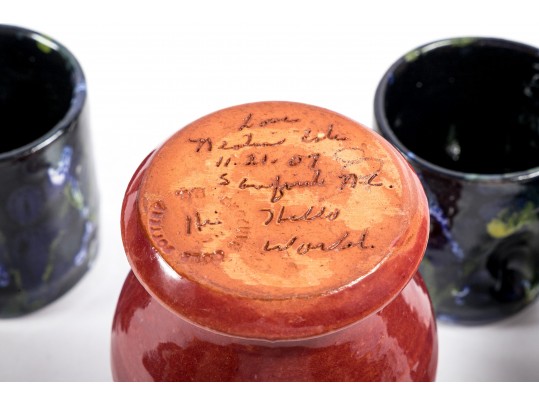 Love
Neolia Cole
11.21.07
Sanford N.C.
Hi Hello
World.